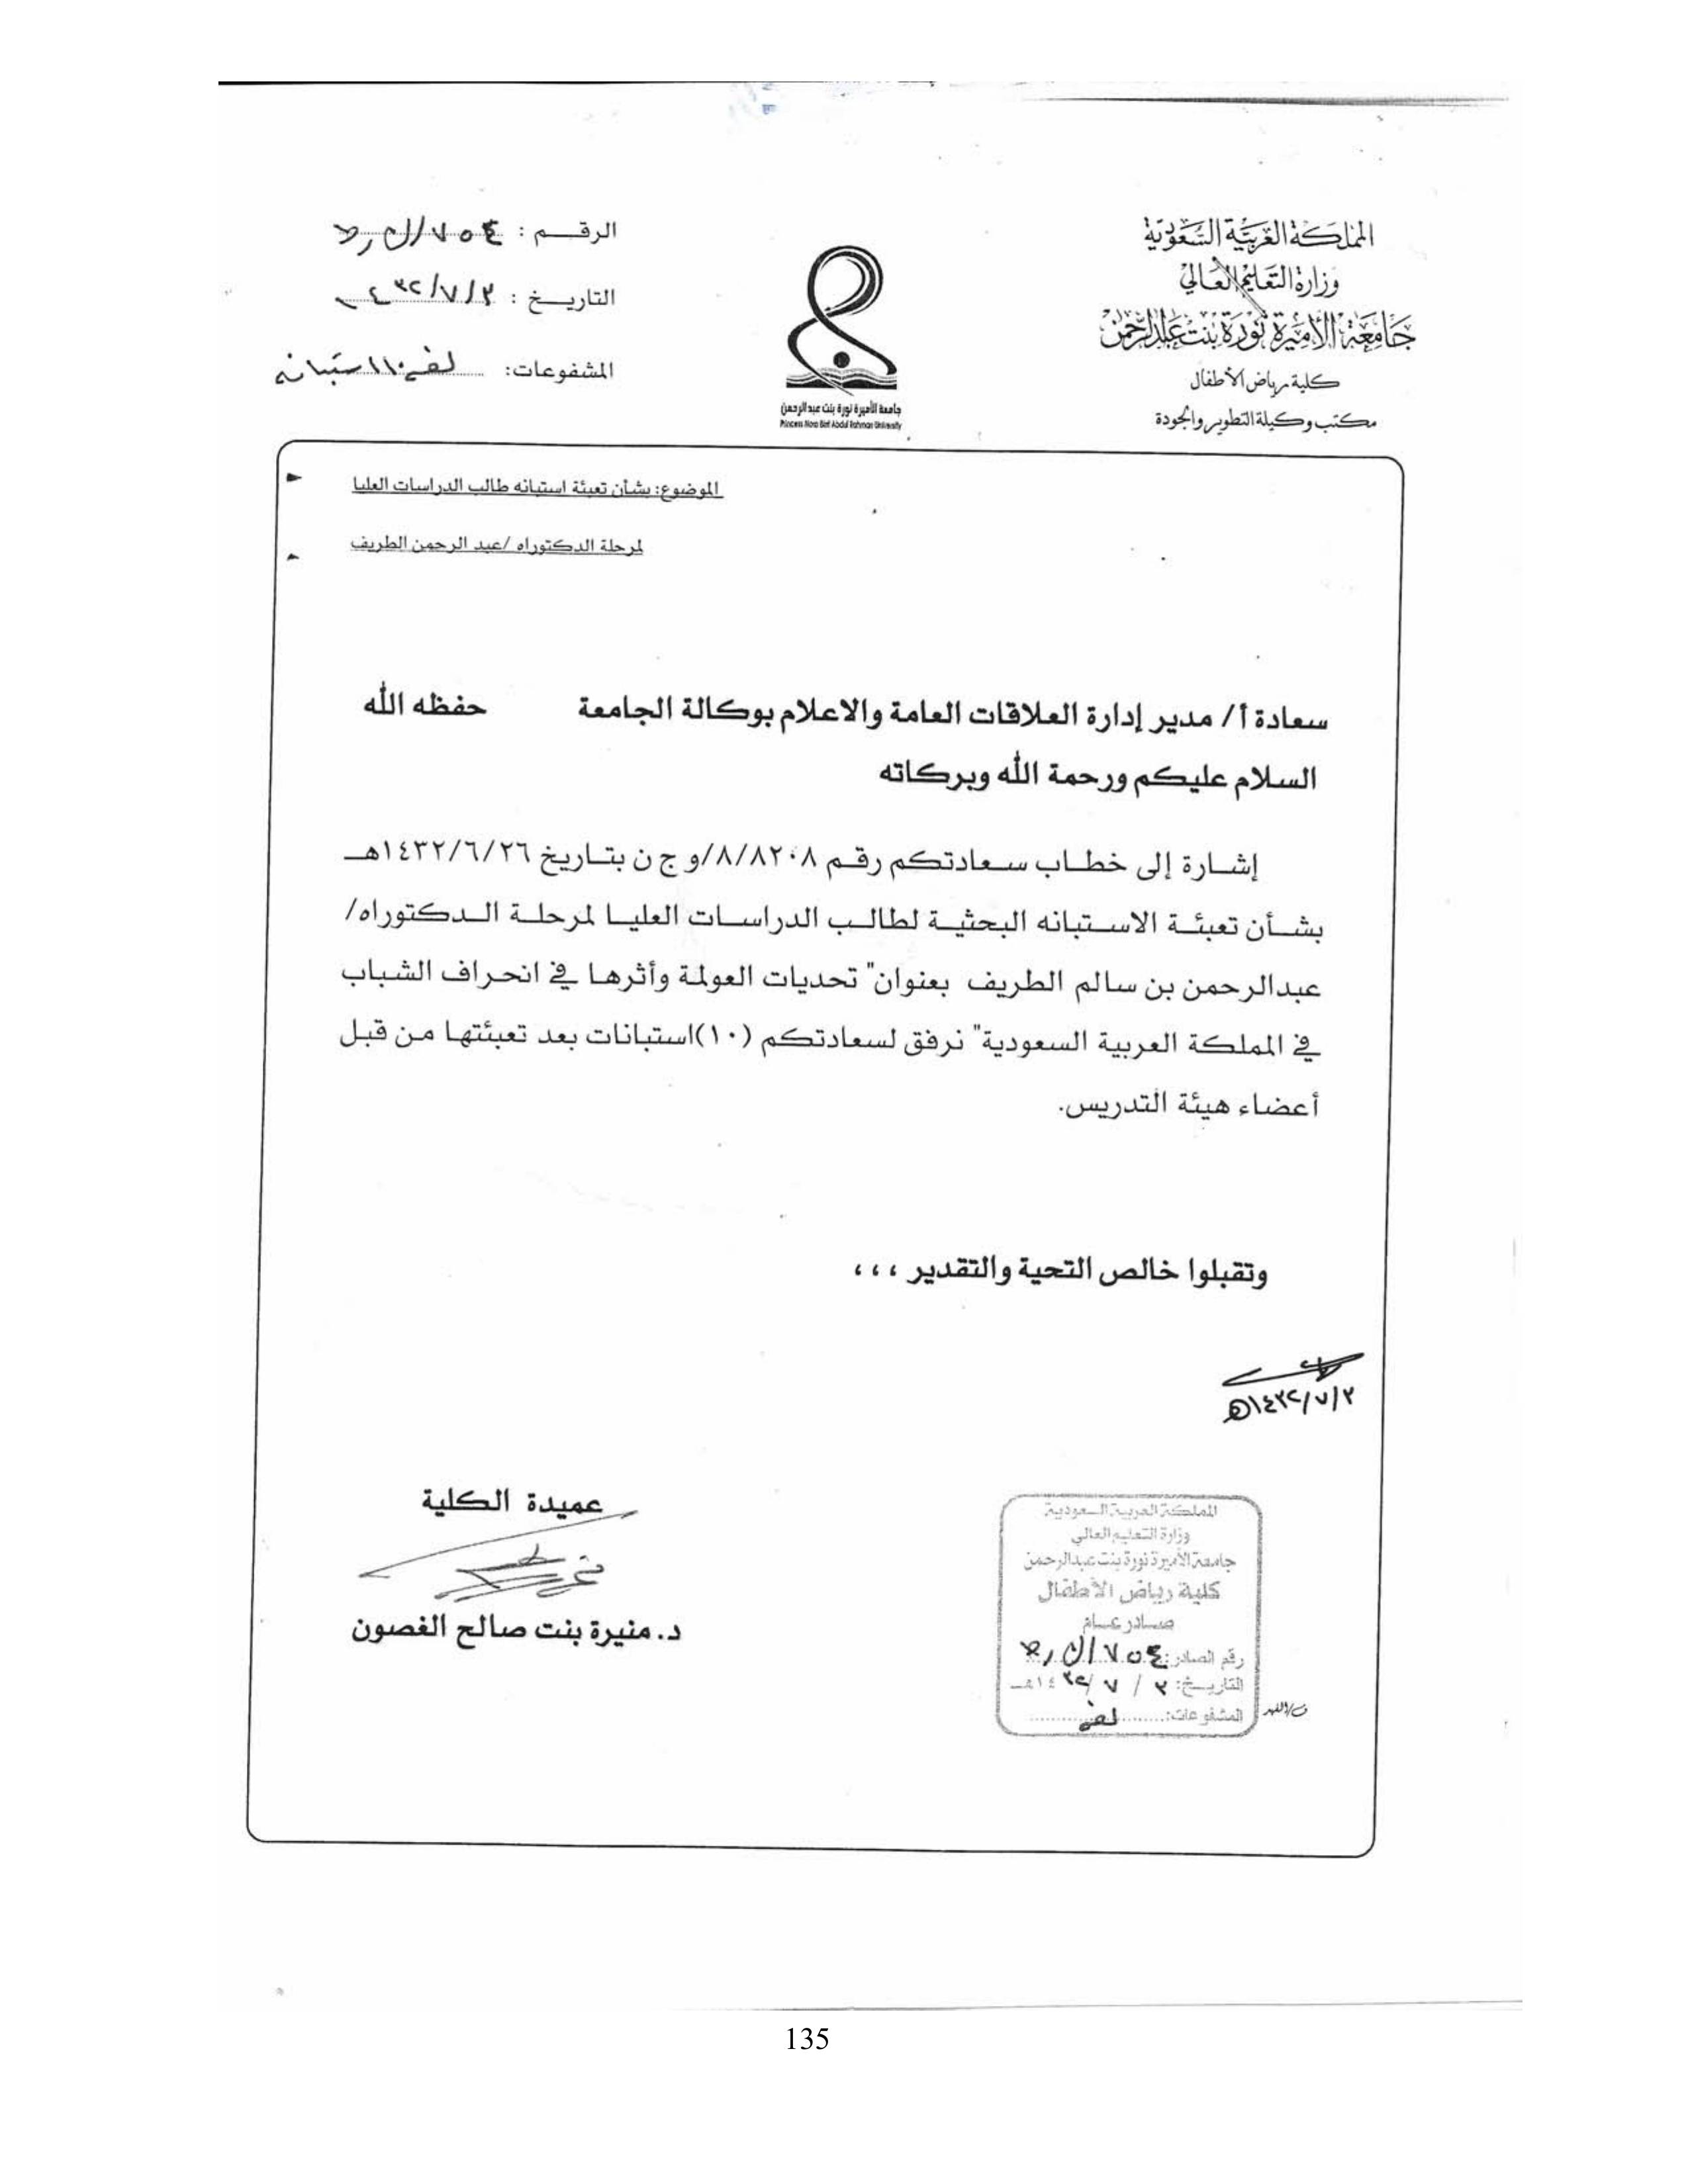 المملكة العربية السعودية
وزارة التعليم العالي
جامعة الأميرة نورة بنت عبدالرحمن
كلية رياض الأطفال
مكتب وكيلة التطوير والجودة
جامعة الأميرة نورة بنت عبدالرحمن
Princess Nora Bint Abdul Rahman University
الرقـــم :
التاريـــخ :
المشفوعات:
الموضوع: بشأن تعبئة استبانه طالب الدراسات العليا
لمرحلة الدكتوراه /عبد الرحمن الطريف
سعادة أ/ مدير إدارة العلاقات العامة والاعلام بوكالة الجامعة حفظه الله
السلام عليكم ورحمة الله وبركاته
إشارة إلى خطاب سعادتكم رقم ٨/٨٢٠٨/و ج ن بتاريخ ١٤٣٢/٦/٢٦هـ
بشأن تعبئة الاستبانه البحثية لطالب الدراسات العليا لمرحلة الدكتوراه/
عبدالرحمن بن سالم الطريف بعنوان" تحديات العولمة وأثرها في انحراف الشباب
في المملكة العربية السعودية" نرفق لسعادتكم (١٠)استبانات بعد تعبئتها من قبل
أعضاء هيئة التدريس.
وتقبلوا خالص التحية والتقدير ،،،
١٤٣٢/٧/٢هـ
عميدة الكلية
د. منيرة بنت صالح الغصون
المملكة العربية السعودية
وزارة التعليم العالي
جامعة الأميرة نورة بنت عبدالرحمن
كلية رياض الأطفال
صادر عام
رقم الصادر:
التاريـــخ: ٢ / ٧ / ١٤٣٢هـ
المشفوعات:
135